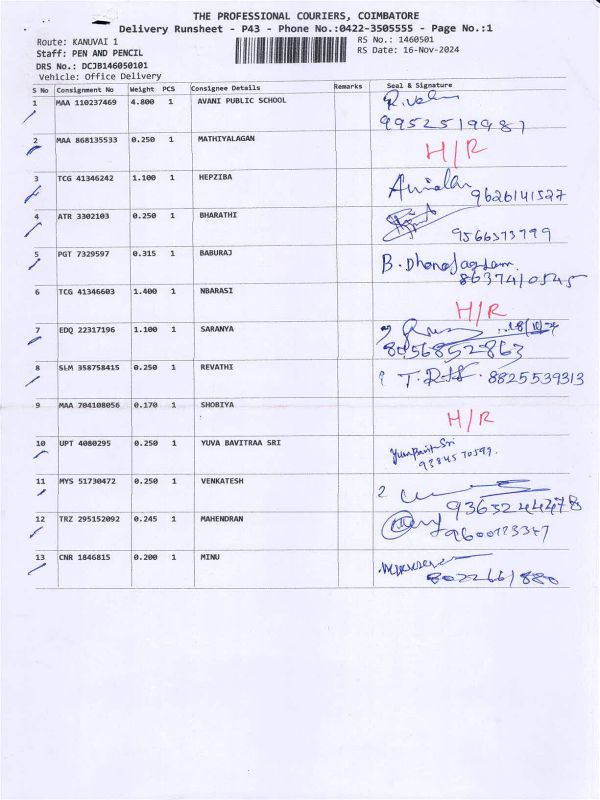 THE PROFESSIONAL COURIERS, COIMBATORE
Delivery Runsheet - P43 - Phone No.:0422-3505555 - Page No.:1
Route: KANUVAI 1
RS No.: 1460501
Staff: PEN AND PENCIL
RS Date: 16-Nov-2024
DRS No.: DCJB146050101
Vehicle: Office Delivery
S No Consignment No Weight PCS Consignee Details Remarks Seal & Signature
1 MAA 110237469 4.800 1 AVANI PUBLIC SCHOOL
9952519987
2 MAA 868135533 0.250 1 MATHIYALAGAN H/R
3 TCG 41346242 1.100 1 HEPZIBA
9626141527
4 ATR 3302103 0.250 1 BHARATHI
9566373799
5 PGT 7329597 0.315 1 BABURAJ B.
8637410545
6 TCG 41346603 1.400 1 NBARASI H/R
7 EDQ 22317196 1.100 1 SARANYA
8056852863
8 SLM 358758415 0.250 1 REVATHI 8825539313
9 MAA 704108056 0.170 1 SHOBIYA H/R
10 UPT 4080295 0.250 1 YUVA BAVITRAA SRI
9384570599.
11 MYS 51730472 0.250 1 VENKATESH
9365244478
12 TRZ 295152092 0.245 1 MAHENDRAN
9600123347
13 CNR 1846815 0.200 1 MINU
8022661880